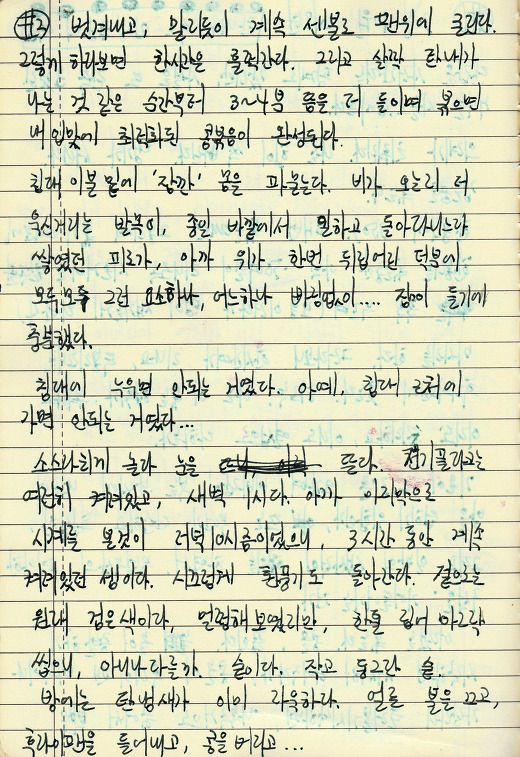 #3) 벗겨내고, 말리듯이 계속 센불로 팬위에 굴린다.
그렇게 하다보면 한시간은 훌쩍간다. 그리고 살짝 탄내가
나는 것 같은 순간부터 3~4분 쯤을 더 들이며 볶으면
내 입맛에 최적화된 콩볶음이 완성된다.
침대 이불 밑에 '잠깐' 몸을 파묻는다. 비가 오늘리 더
욱신거리는 발목이, 종일 바깥에서 일하고 돌아다니느라
쌓였던 피로가, 아까 위가 한번 뒤집어진 덕분에
모두모두 그런 요소하나, 어느하나 빠짐없이.... 잠이 들기에
충분했다.
침대에 누우면 안되는 거였다. 아예, 침대 근처에
가면 안되는 거였다...
소스라치게 놀라 눈을 뜬다. 전기플라크는
여전히 켜져있고, 새벽 1시다. 아까 마지막으로
시계를 본것이 저녁 10시쯤이었으니, 3시간 동안 계속
켜져있던 셈이다. 시끄럽게 환풍기도 돌아간다. 겉으로는
원래 검은색이다, 멀쩡해보였지만, 한톨 집어 아그작
씹으니, 아니나다를까. 숯이다. 작고 동그란 숯.
방에는 탄냄새가 이미 자욱하다. 얼른 불을 끄고,
후라이팬을 들어내고, 콩을 버리고...